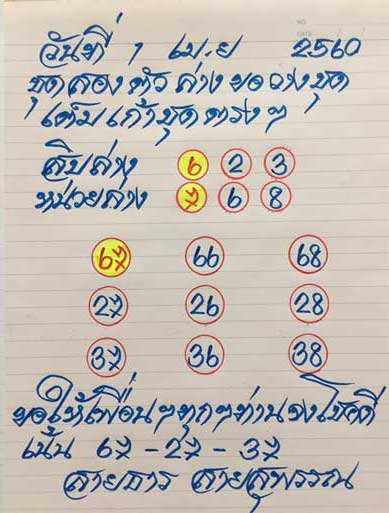 วันที่ 1 เม.ย 2560
ชุดสองตัวล่างขอวางชุด
เต็มเก้าชุดตรงๆ
สิบล่าง 6 2 3
หน่วยล่าง 7 6 8
67 66 68
27 26 28
37 36 38
ขอให้เพื่อนๆทุกๆท่านจงโชคดี
เน้น 67 - 27 - 37
สายธาร สายสุพรรณ